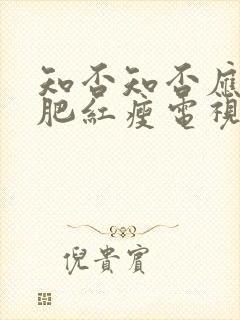 知否知否應
肥紅瘦電視
倪貴賓